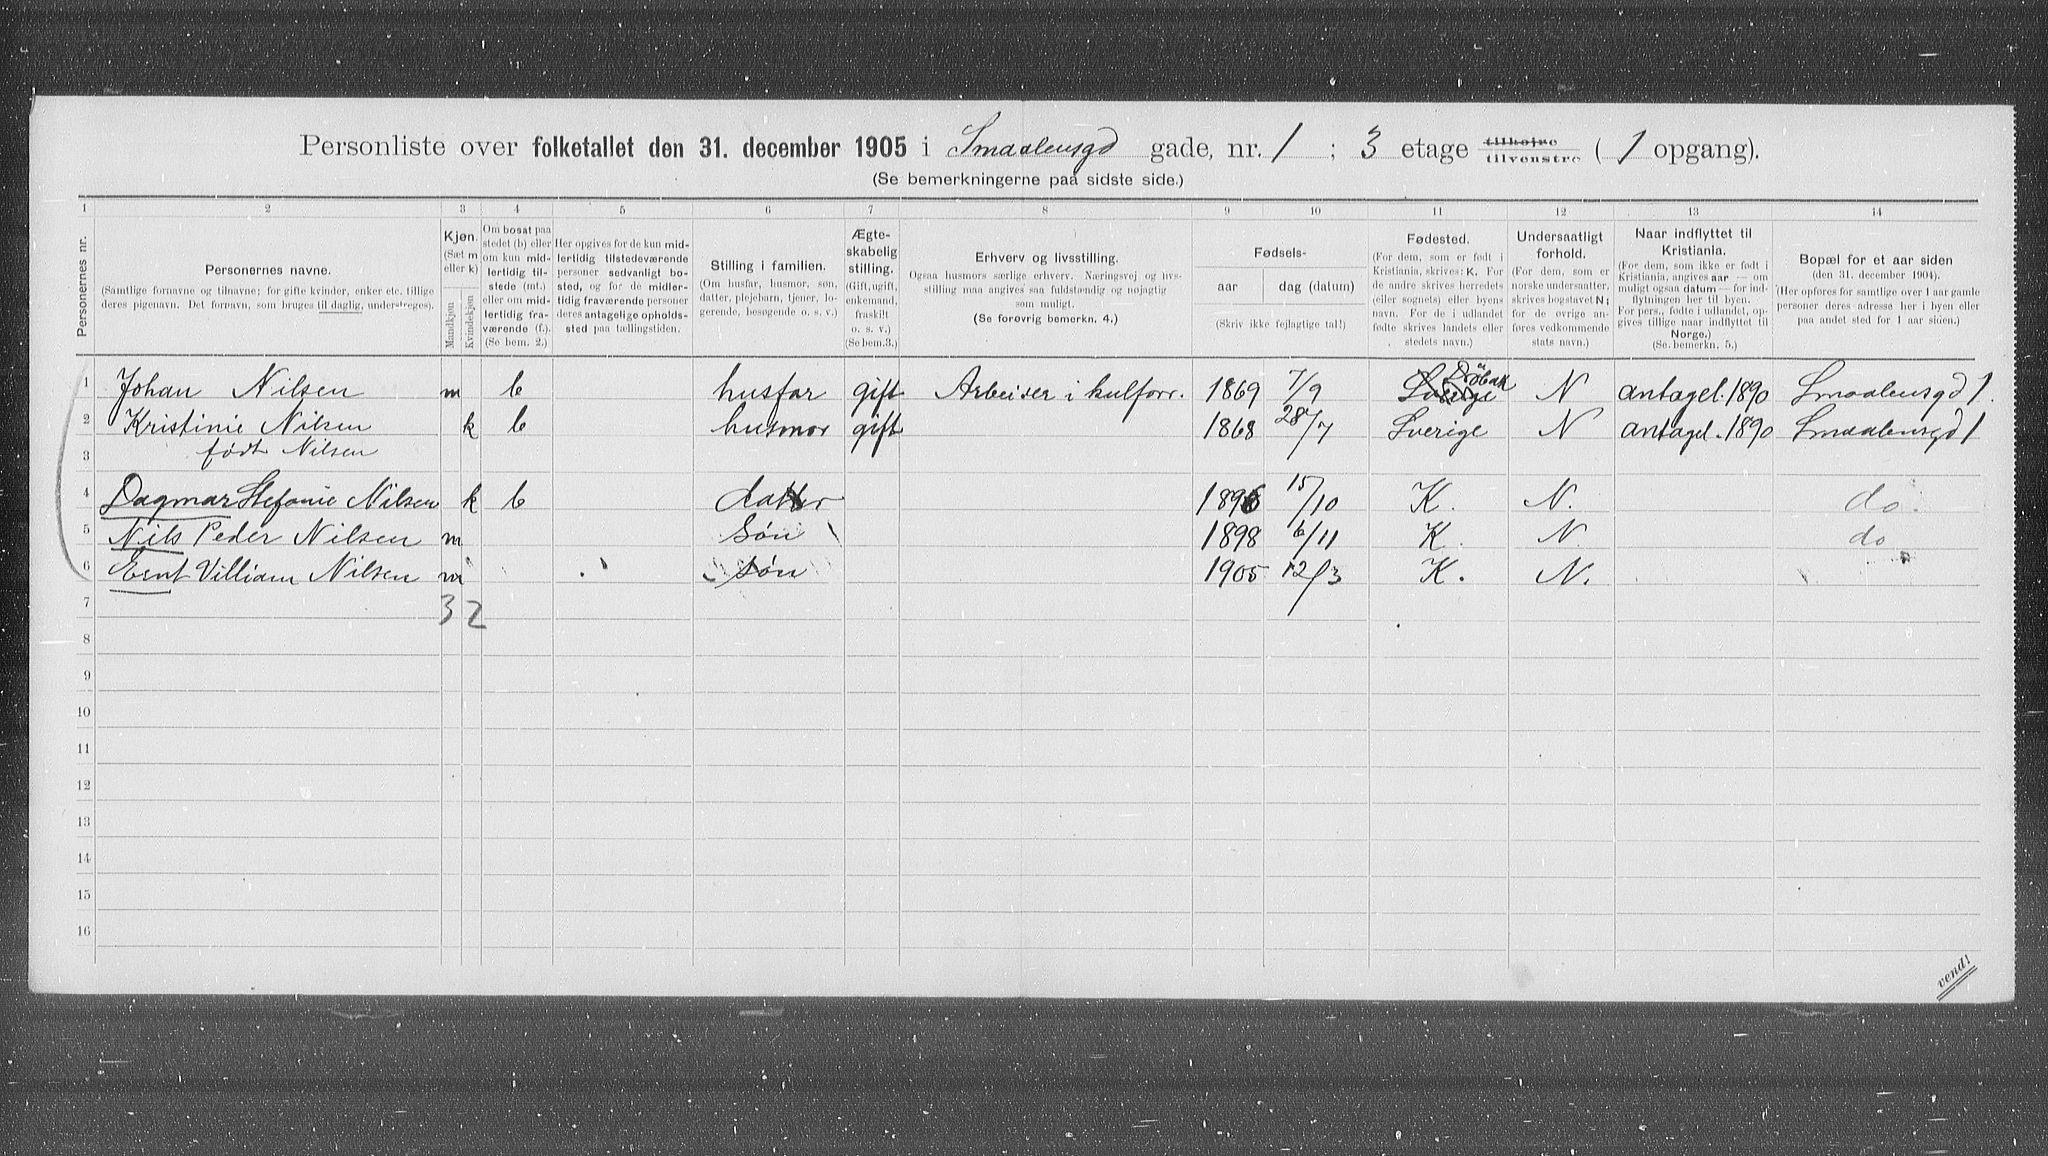 Personliste over folketallet den 31. december 1905 i Smaalensgd gade, nr. 1 ; 3 etage tilhøire tilvenstre ( 1 opgang).
(Se bemerkningerne paa sidste side.)
1 2 3 4 5 6 7 8 9 10 11 12 13 14
Personernes nr.
Personernes navne.
(Samtlige fornavne og tilnavne; for gifte kvinder, enker etc. tillige
deres pigenavn. Det fornavn, som bruges til daglig, understreges).
Kjøn.
(Sæt m
eller k)
Mandkjøn
Kvindekjøn
Om bosat paa
stedet (b) eller
om kun mid-
lertidig til-
stede (mt.)
eller om mid-
lertidig fra-
værende (f.).
(Se bem. 2.)
Her opgives for de kun mid-
lertidig tilstedeværende
personer sedvanligt bo-
sted, og for de midler-
tidig fraværende personer
deres antagelige opholds-
sted paa tællingstiden.
Stilling i familien.
(Om husfar, husmor, søn,
datter, plejebarn, tjener, lo-
gerende, besøgende o. s. v.)
Ægte-
skabelig
stilling.
(Gift, ugift,
enkemand,
fraskilt
o. s. v.)
(Se bem. 3.)
Erhverv og livsstilling.
Ogsaa husmors særlige erhverv. Næringsvej og livs-
stilling maa angives saa fuldstændig og nøjagtig
som muligt.
(Se forøvrig bemerkn. 4.)
Fødsels-
aar dag (datum)
(Skriv ikke fejlagtige tal!)
Fødested.
(For dem, som er født i
Kristiania, skrives: K. For
de andre skrives herredets
(eller sognets) eller byens
navn. For de i udlandet
fødte skrives landets eller
stedets navn.)
Undersaatligt
forhold.
(For dem, som er
norske undersatter,
skrives bogstavet N;
for de øvrige an-
føres vedkommende
stats navn.)
Naar indflyttet til
Kristiania.
(For dem, som ikke er født i
Kristiania, angives aar — om
muligt ogsaa datum — for ind-
flytningen her til byen.
For pers., fødte i udlandet, op-
gives tillige naar indflyttet til
Norge.)
(Se. bemerkn. 5.)
Bopæl for et aar siden
(den 31. december 1904).
(Her opføres for samtlige over 1 aar gamle
personer deres adresse her i byen eller
paa andet sted for 1 aar siden.)
Drøbak
1 Johan Nilsen m b husfar gift Arbeiser i kulforr. 1869 7/9 Sverige N antagel. 1890 Smaalensgd 1.
2 Kristinie Nilsen k b husmor gift 1868 28/7 Sverige N antagel. 1890 Smaalensgd 1
3 født Nilsen
4 Dagmar Stefanie Nilsen k b datter 1896 15/10 K. N. do.
5 Nils Peder Nilsen m Søn 1898 6/11 K. N do
6 Ernt Villiam Nilsen m Søn 1905 12/3 K. N.
7 3 2
8
9
10
11
12
13
14
15
16
vend!